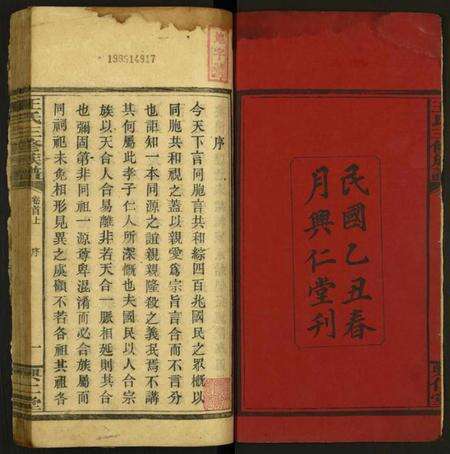 民國乙丑春
月興仁堂刊
序
今天下言同胞言共和綜四百兆國民之眾慨以
同胞共和視之蓋以親愛為宗旨言合而不言分
也詎知一本同源之誼親親隆殺之義民焉不講
其何屬此孝子仁人所深慨也夫國民以人合宗
族以天合人合易離非若天合一脈相延則其合
也彌固第非同祖一源尊卑混淆而必合族屬而
同祠祀未免相形見異之虞顧不若各祖其祖各
王氏三修族譜
卷首上
序
一